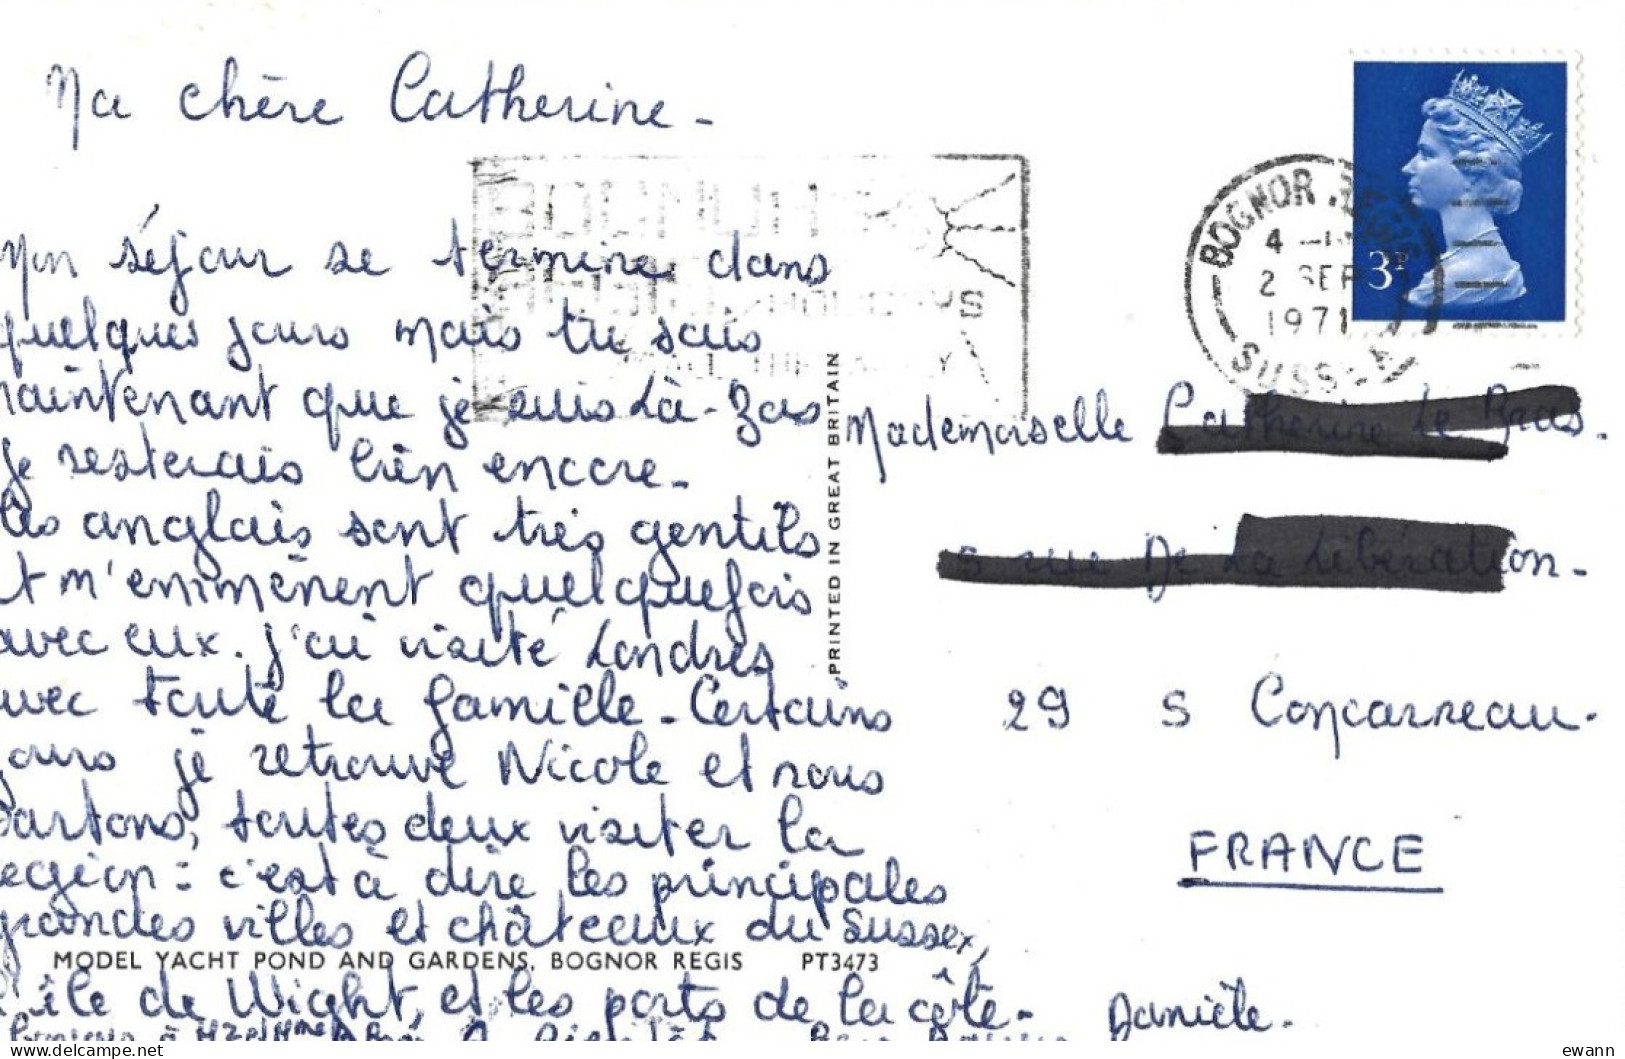 Ma chère Catherine -
BOGNOR REGIS
4 -
2 SEP
1971
SUSSEX
3P
Mon séjour se termine dans
quelques jours mais tu sais
maintenant que je suis là-bas
je resterais bien encore.
Les anglais sont très gentils
et m'emmènent quelquefois
avec eux. j'ai visité Londres
avec toute la famille - Certains
jours je retrouve Nicole et nous
partons, toutes deux visiter la
région : c'est à dire les principales
grandes villes et châteaux du Sussex,
l'île de Wight, et les ports de la côte -
Danièle.
PRINTED IN GREAT BRITAIN
MODEL YACHT POND AND GARDENS, BOGNOR REGIS PT3473
Mademoiselle
29 S Concarneau -
FRANCE
ewann
www.delcampe.net